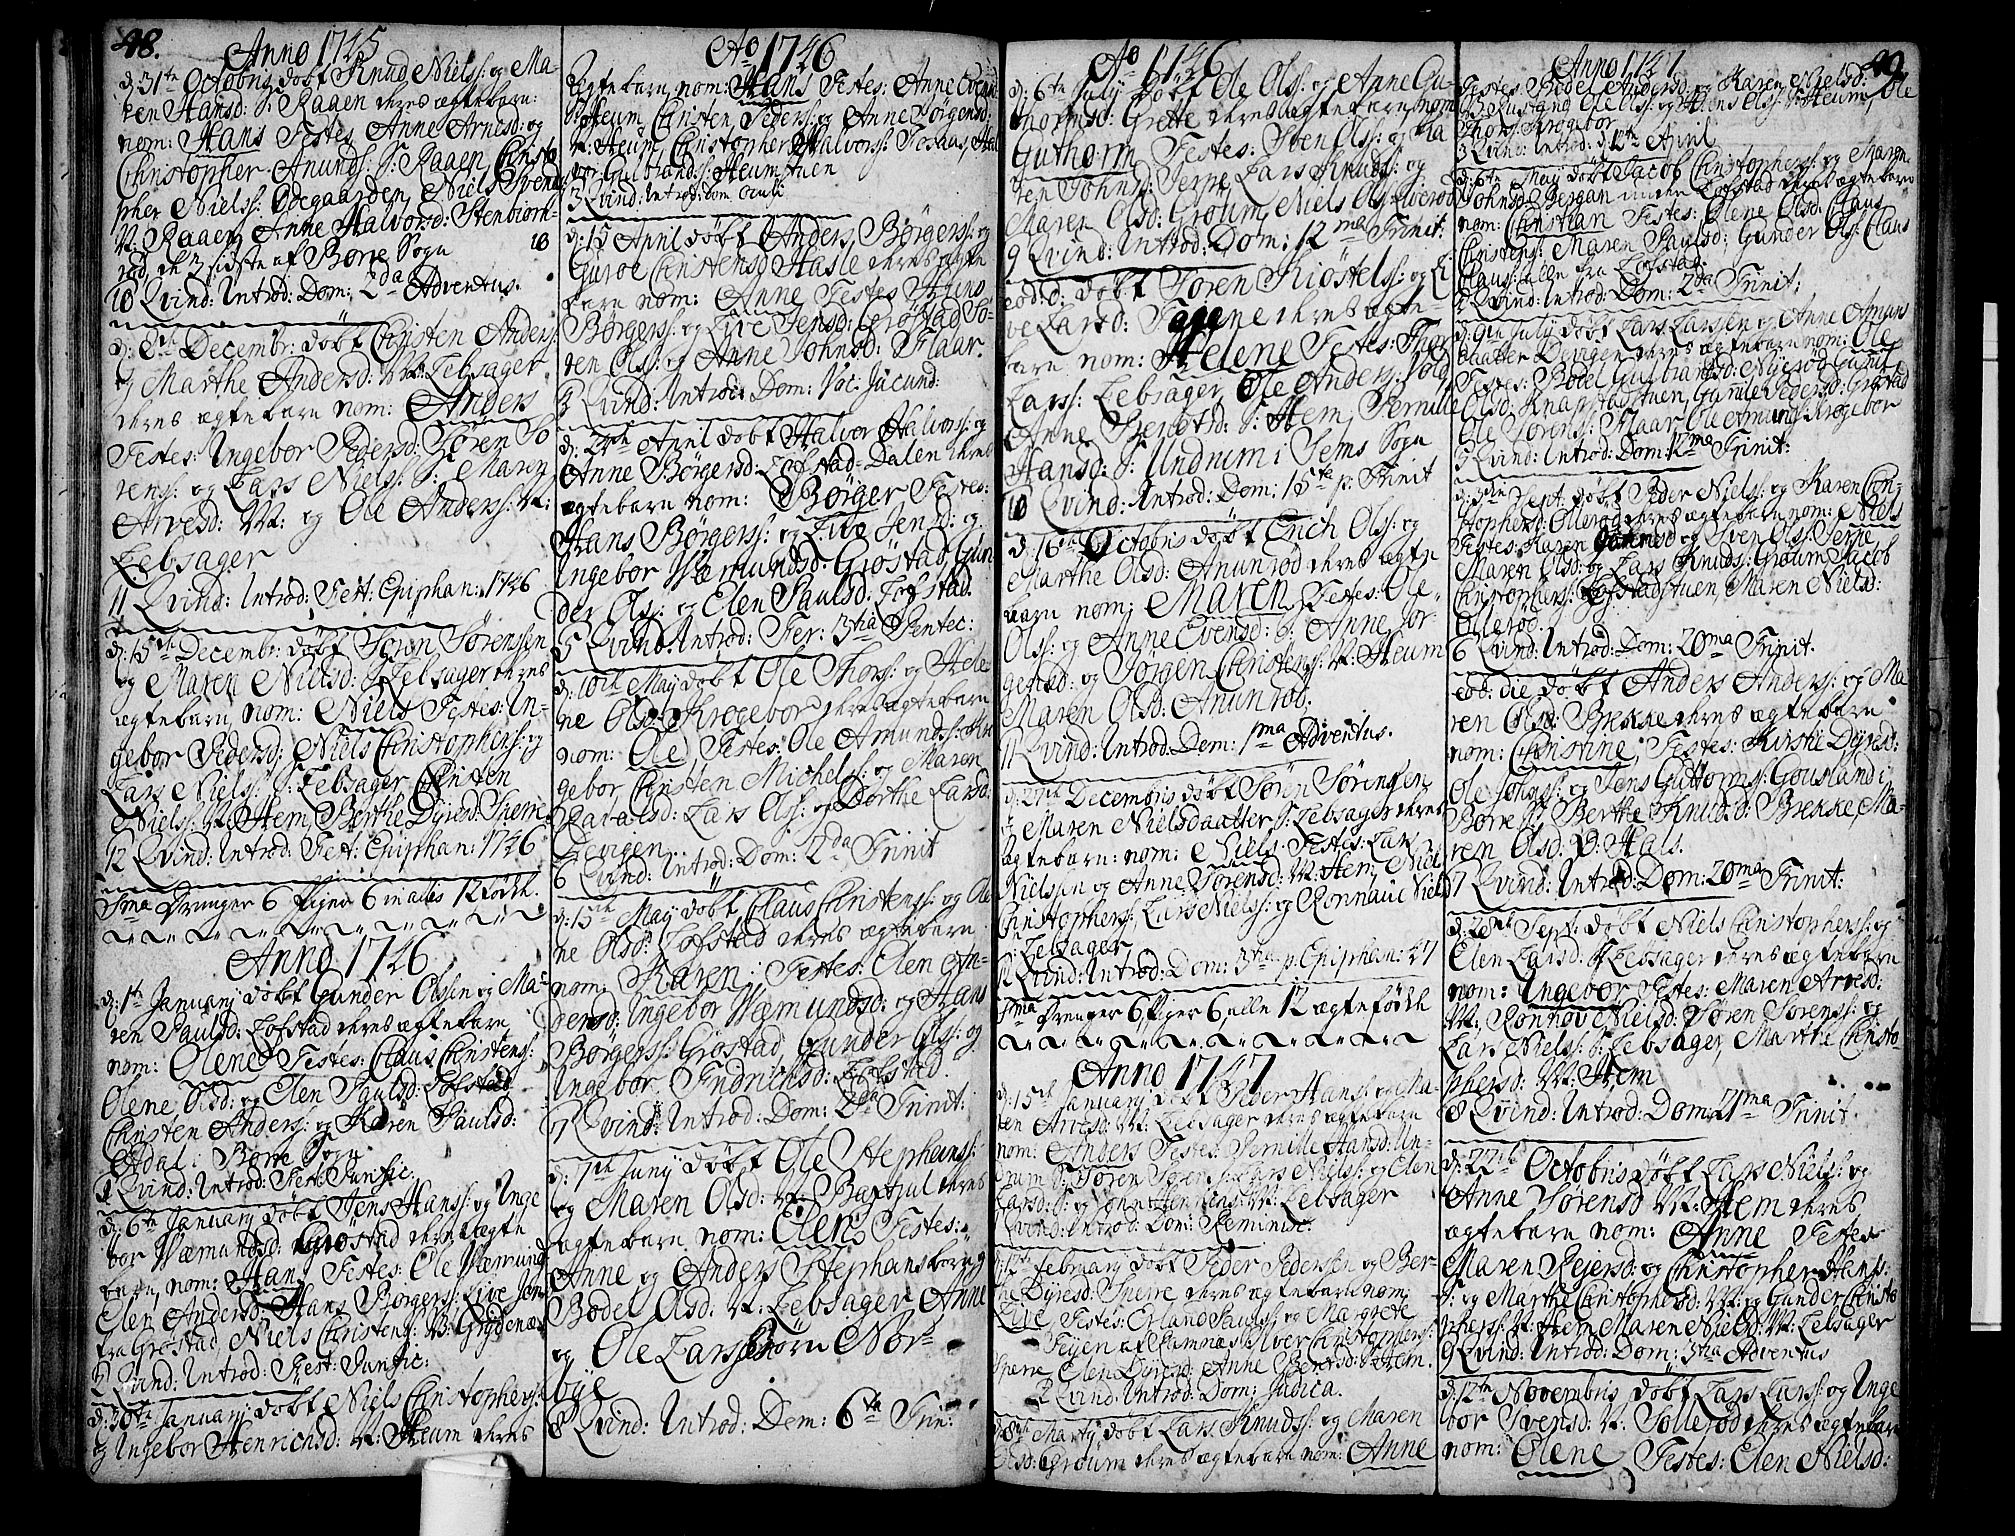 48.
Anno 1745
d: 31te Octobris døbt Knud Niels: og Ma-
ren Hansd: S: Raaen deres ægtebarn:
nom: Hans Testes Anne Arnesd: og
Christopher Anunds: S: Raaen, Christo
pher Niels: Odegaarden, Niels Svends
N: Raaen, Anne Halvorsd: Stenbiørk-
rød, de 2 sidste af Borre Sogn
10 Qvind: Introd: Dom: 2da Adventus.
d: 8de Decembr: døbt Christen Anders:
og Marthe Andersd: N: Lebsager
deres ægtebarn nom: Anders
Testes: Ingebor Pedersd: Søren Sø
rens: og Lars Niels: S: Maren
Arvesd: N: og Ole Anders: N:
Lebsager
11 Qvind: Introd: Fest: Epiphan: 1746
d: 15de Decembr: døbt Søren Sørensen
og Maren Nielsd: S: Lebsager deres
ægtebarn nom: Niels Testes: In-
gebor Pedersd: Niels Christophers: og
Lars Niels: S: Lebsager, Christen
Niels: N: Hem, Berthe Dyresd: Sperre
12 Qvind: Introd: Fest: Epiphan: 1746
Sma Drenger 6 Piger 6 in alles 12 fødde.
Anno 1746
d: 1te January døbt Gunder Olssen og Ma-
ren Paulsd: Lofstad deres ægtebarn
nom: Olene Testes: Claus Christens:
Olene Olsd: og Elen Paulsd: Lofstad
Christen Anders: og Karen Paulsd:
Adal i Borre Sogn
1 Qvind: Introd: Fest: Purific:
d: 6te January døbt Jens Hans: og Inge
bor Wæmundsd: Grøstad deres ægte
barn, nom: Hans Testes: Ole Wæmunds
Elen Andersd: Hans Børgers: Live Jens
fra Grøstad, Niels Christens:
2 Qvind: Introd: Fest: Purific:
d: 30te January: døbt Niels Christophers:
og Ingebor Henrichsd: N: Heum deres

Ao 1746
Ægtebarn nom: Hans Testes: Anne Evens
S: Heum Christen Peders: og Anne Børgensd:
N: Heum, Christopher Halvors: Fosaas, Hal
vor Gulbrands: Heumstuen
3 Qvind: Introd: Dom: Oculi:
d: 15 April døbt Anders Børgers: og
Guroe Christensd: Hasle deres ægte
barn nom: Anne Testes Hans
Børgers: og Live Jensd: Grøstad, Sø-
ren Ols: og Anne Johnsd: Flaar.
4 Qvind: Introd: Dom: Voc: Jucund:
d: 24de April døbt Halvor Halvors: og
Anne Børgersd: Lofstad-Dalen deres
ægtebarn nom: Børger Testes:
Hans Børgers: og Live Jensd: og
Ingebor Wæmundsd: Grøstad, Gun
der Ols: og Elen Paulsd: Lofstad.
5 Qvind: Introd: Fer: 3tia Pentec:
d: 10de May døbt Ole Thors: og Hele
ne Olsd: Krogebor deres ægtebarn
nom: Ole Testes: Ole Amunds: Kro
gebor Christen Michels: og Maren
Lars Ols: og Dorthe Larsd:
Løvigen.
6 Qvind: Introd: Dom: 2da Trinit
d: 15de May døbt Claus Christens: og Ole
ne Olsd: Lofstad deres ægtebarn
nom: Karen Testes: Elen
Ingebor Wæmundsd: og Hans
Børgers: Grøstad, Gunder Ols: og
Ingebor Fridrichsd: Lofstad.
7 Qvind: Introd: Dom: 2da Trinit:
d: 7de Juny døbt Ole Stephens:
og Maren Olsd: N: Baxtjul deres
ægtebarn nom: Elen Testes:
Anne og Anders Stephansbørn og
Bodel Olsd: N: Lebsager, Anne
og Ole Larsbørn Nor-
bye
8 Qvind: Introd: Dom: 6ta Trin:

Ao 1746
d: 6te July døbt Ole Ols: og Anne Gu-
thormsd: Grette deres ægtebarn nom
Guthorm Testes: Iben Ols: og Ma
ren Johnsd: Jerpe, Lars Knuds: og
Maren Olsd: Groum, Niels Ols:
9 Qvind: Introd: Dom: 12ma Trinit:
eod: d: døbt Søren Kiøstels: og Li
ve Larsd: deres ægte
barn nom: Helene Testes: Thor
Lars: Lebsager, Ole Anders: Vold,
Anne Bentsd: S: Hem, Pernille
Hansd: S: Undrum i Sems Sogn
10 Qvind: Introd: Dom: 15te p: Trinit
d: 16de Octobris døbt Erich Ols: og
Marthe Olsd: Anunrød deres ægte
barn nom: Maren Testes: Ole
Ols: og Anne Evensd: S: Anne Jør
gensd: og Jørgen Christens: N: Heum
Maren Olsd: Anunrød:
11 Qvind: Introd: Dom: 1ma Adventus.
d: 27de Decembris døbt Søren Sørensen
og Maren Nielsdaatter S: Lebsager deres
ægtebarn: nom: Niels Testes: Lars
Nielsen og Anne Sørensd: N: Hem, Niels
Christophers: Lars Niels: og Ronnaue Niels
S: Lebsager
12 Qvind: Introd: Dom: 3tia p: Epiphan: 47
Sma Drenger 6, Piger 6, alle 12 ægtefødde
Anno 1747
d: 15de January døbt Peder Hans: og Ma-
ren Arvesd: N: Lebsager deres ægtebarn
nom: Anders Testes: Pernille Hansd: Un-
drum S: Søren Sørens: Lars Niels: og Elen
Larsd: S: og N: Lebsager
1 Qvind: Introd: Dom: Reminisc:
d: 12te February døbt Peder Pedersen og Ber-
the Dyresd: Sperre deres ægtebarn nom:
Live, Testes: Erland Pauls: og Margrete
Feyen af Ramnes, Iver Christophers:
Sperre, Elen Dyresd: Anne Bentsd: S: Hem.
2 Qvind: Introd: Dom: Judica.
d: 8de Marty døbt Lars Knuds: og Maren
Olsd: Groum deres ægtebarn nom: Anne

Anno 1747
49.
Testes: Bodel Andersd: og Karen Nielsd:
Ole Ols: og Hans Ols: S: Heum, Ole
Thors: Krogebor
3 Qvind: Introd: d: 12te April
d: 6te May døbt Jacob Christophers: og Maren
Johnsd: Bergan under Lofstad deres ægtebarn
nom: Christian Testes: Olene Olsd: Claus
Christens: Maren Paulsd: Gunder Ols: Claus
Claus: alle fra Lofstad.
4 Qvind: Introd: Dom: 2da Trinit:
d: 9de July døbt Lars Larsen og Anne Amuns
daatter Løvigen deres ægtebarn nom: Ole
Testes: Bodel Gulbrandsd: Nyerød, Gunil
Olsd: Knapstadstuen, Gunile Pedersd: Grøstad
Ole Sørens: Flaar, Ole Amunds: Krogebor
5 Qvind: Introd: Dom: 12ma Trinit:
d: 3die Sept: døbt Peder Niels: og Karen Chri-
stophersd: Ollerød deres ægtebarn nom: Niels
Testes: Karen og Sven Ols: Jerpe
Maren Olsd: og Lars Knuds: Groum, Jacob
Christophers: Lofstadstuen, Maren Nielsd:
Ollerød.
6 Qvind: Introd: Dom: 20ma Trinit.
eod: die døbt Anders Anders: og Ma
ren Olsd: Brekke deres ægtebarn
nom: Christine, Testes: Kirstie Dyresd:
Ole Johns: og Jens Guttorms: Gousland i
Borre S: Berthe Knudsd: Brekke, Ma-
ren Olsd: Ø: Hals.
7 Qvind: Introd: Dom: 20ma Trinit:
d: 20de Sept: døbt Niels Christophers: og
Elen Larsd: S: Lebsager deres ægtebarn
nom: Ingebor Testes: Maren Arvesd:
N: Ronnov Nielsd: Søren Sørens: og
Lars Niels: S: Lebsager, Marthe Christo-
phersd: N: Hem
8 Qvind: Introd: Dom: 21ma Trinit.
d: 22de Octobris døbt Lars Niels: og
Anne Sørensd N: Hem deres
ægtebarn nom: Anne Testes
Maren Pejersd: og Christopher Hans:
S: og Marthe Christophersd: N: og Gunder Christo
phers: N: Hem, Maren Nielsd: N: Lebsager
9 Qvind: Introd: Dom: 3tia Adventus
d: 12te Novembris døbt Lars Lars: og Inge
bor Svensd: N: Sollerød deres ægtebarn
nom: Olene Testes: Elen Nielsd: